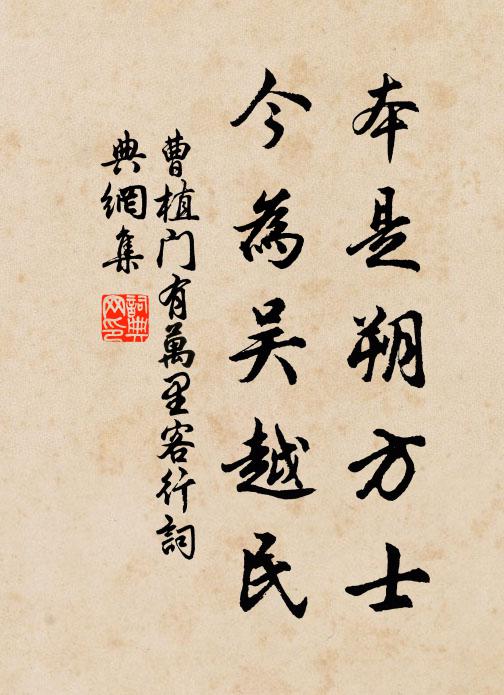 本是朔方士
今為吴越民
曹植门有萬里客行詞
典網集
詞典
网印